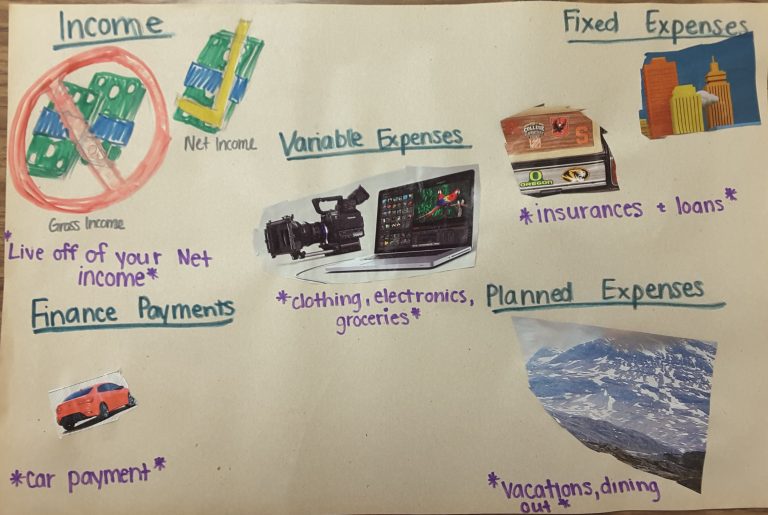 Income
Net Income
Gross Income
*Live off of your Net
income*
Finance Payments
*car payment*
Variable Expenses
*clothing, electronics,
groceries*
Fixed Expenses
COLLEGE
S
O
OREGON
*insurances + loans*
Planned Expenses
*Vacations, dining
out*